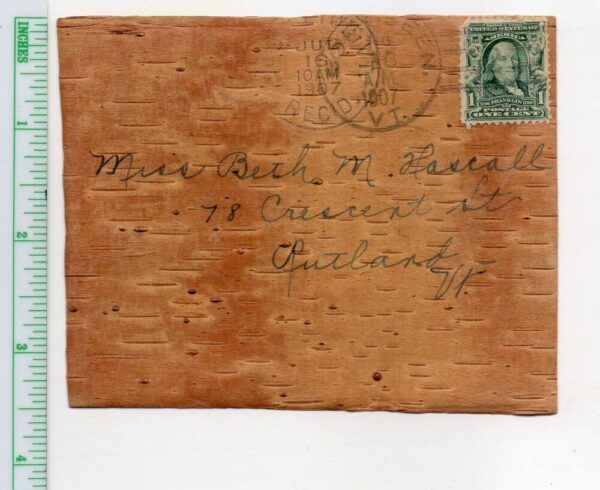 INCHES
1
2
3
4
JUL
16
10 AM
1907
REC'D
1907
VT.
SERIES 1902
UNITED STATES OF AMERICA
1 FRANKLIN 1
POSTAGE
ONE CENT
Miss Beth M. Hascall
78 Crescent St
Rutland
Vt.